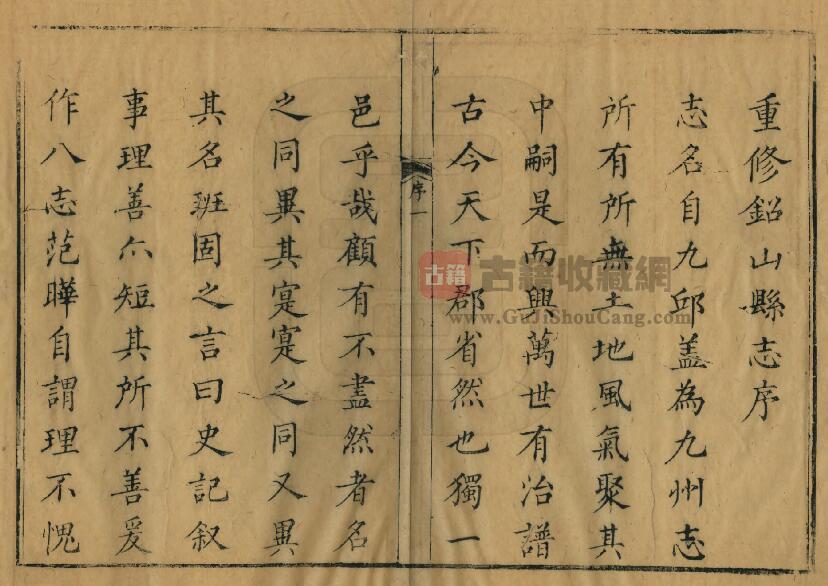 重修鉛山縣志序
志名自九邱葢為九州志
所有所無土地風氣聚其
中嗣是而興萬世有冶譜
古今天下郡省然也獨一
序一
邑乎哉顧有不盡然者名
之同異其寔寔之同又異
其名班固之言曰史記叙
事理善亦短其所不善爰
作八志范曄自謂理不愧
古籍
古籍收藏網
www.GuJiShouCang.com